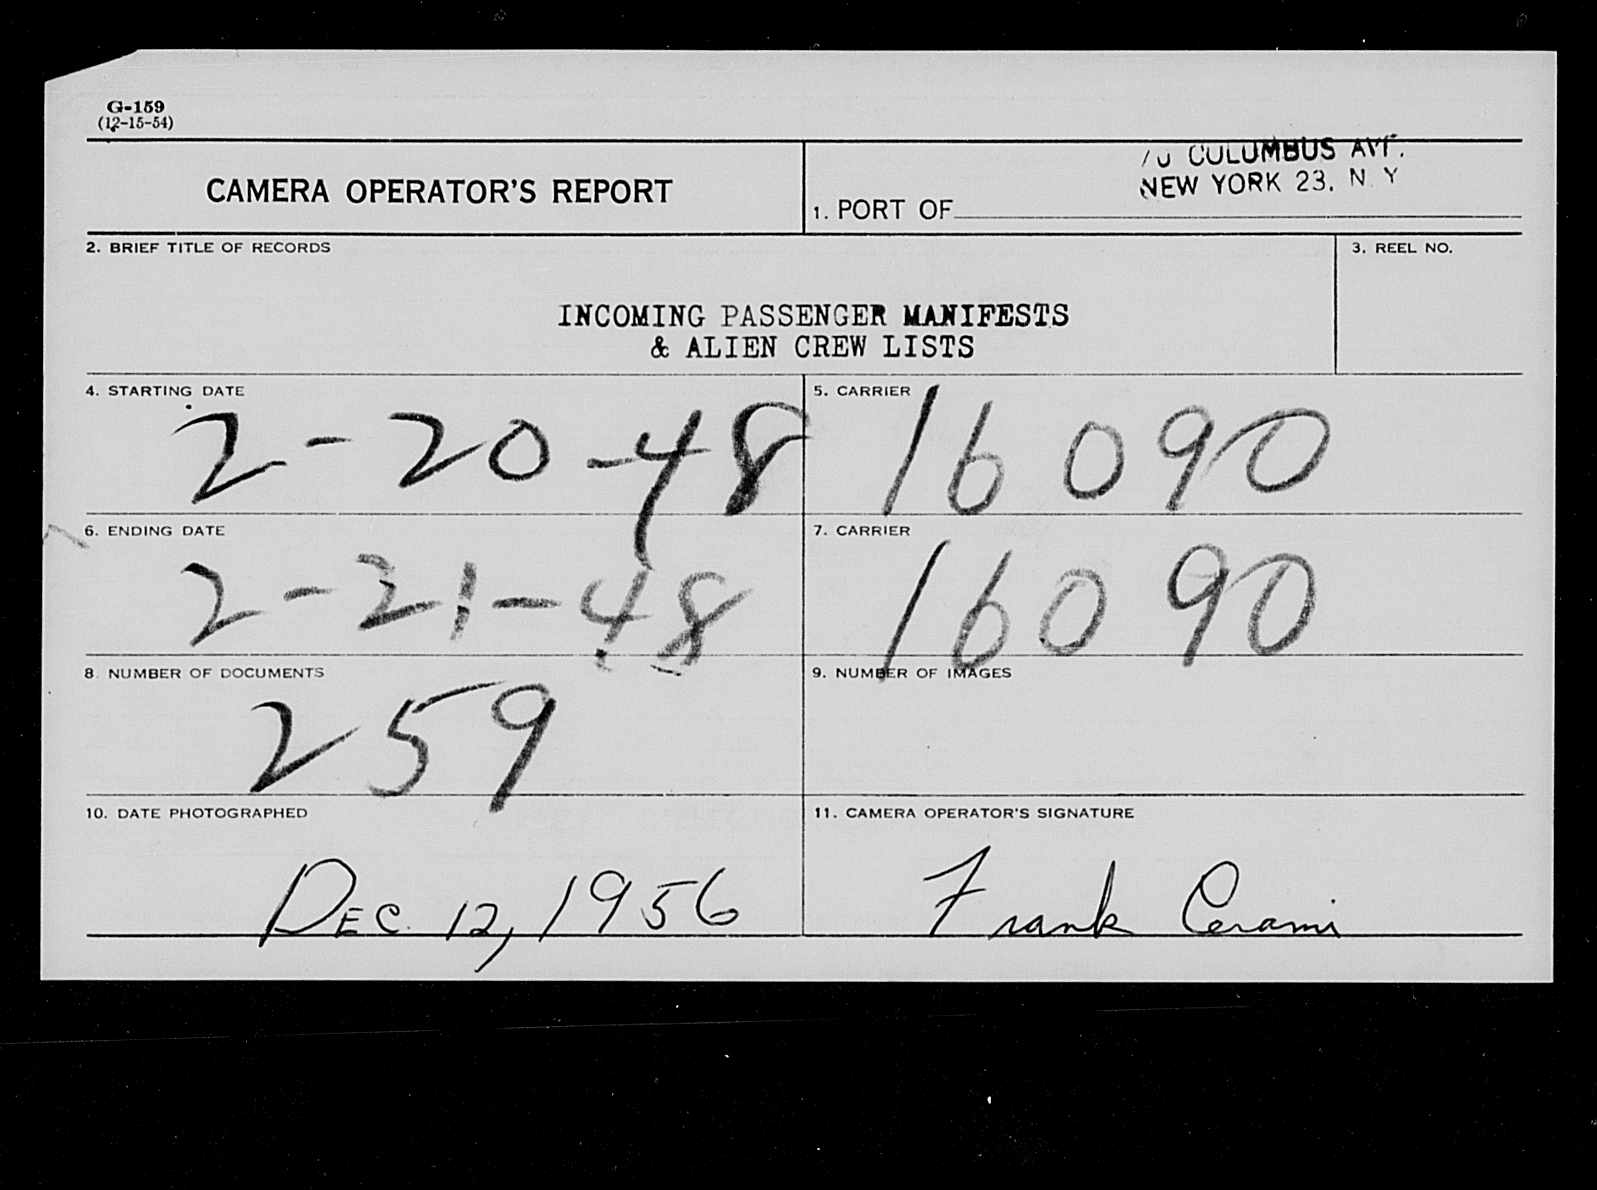 G-159
(12-15-54)
CAMERA OPERATOR'S REPORT
1. PORT OF
70 COLUMBUS AVE.
NEW YORK 23, N. Y
2. BRIEF TITLE OF RECORDS
INCOMING PASSENGER MANIFESTS
& ALIEN CREW LISTS
3. REEL NO.
4. STARTING DATE
2-20-48
5. CARRIER
16090
6. ENDING DATE
2-21-48
7. CARRIER
16090
8. NUMBER OF DOCUMENTS
259
9. NUMBER OF IMAGES
10. DATE PHOTOGRAPHED
DEC. 12, 1956
11. CAMERA OPERATOR'S SIGNATURE
Frank Cerami